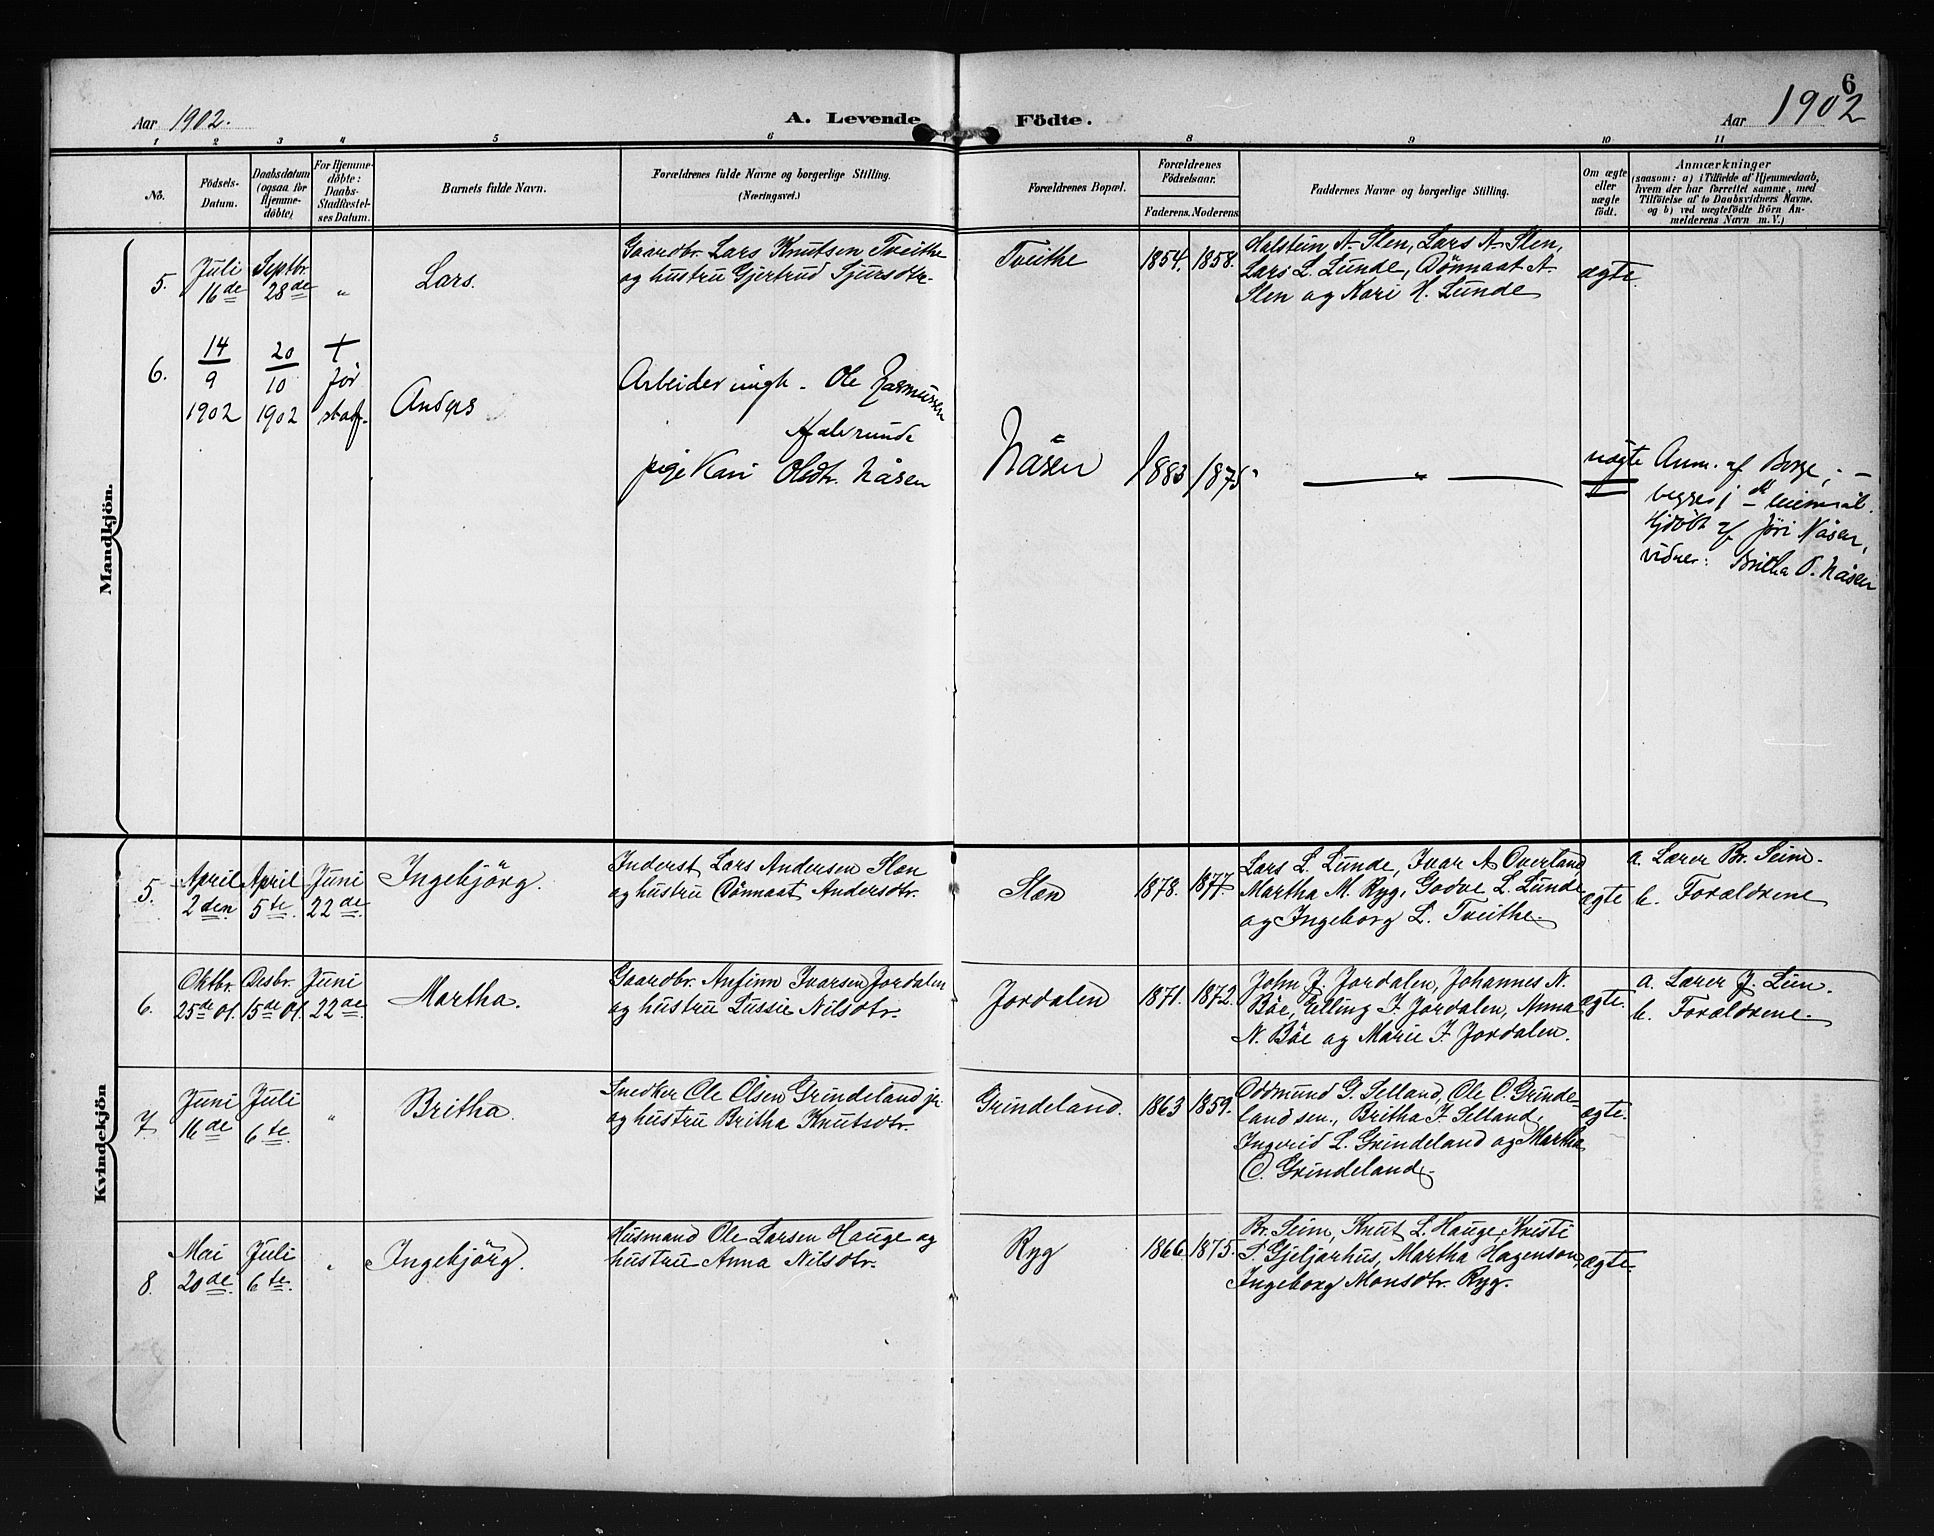 6
Aar 1902.
A. Levende Födte.
Aar 1902
1 2 3 4 5 6 7 8 9 10 11
No.
Födsels-Datum.
Daabsdatum (ogsaa for Hjemme-döbte)
For Hjemme-döbte: Daabs-Stadfæstel-ses Datum.
Barnets fulde Navn.
Forældrenes fulde Navne og borgerlige Stilling. (Næringsvei.)
Forældrenes Bopæl.
Forældrenes Födselsaar.
Faderens. Moderens.
Faddernes Navne og borgerlige Stilling.
Om ægte eller uægte födt.
Anmærkninger
(saasom: a) i Tilfælde af Hjemmedaab,
hvem der har forrettet samme, med
Tilföielse af to Daabsvidners Navne.
og b) ved uægtefödte Börn An-
melderens Navn m. V.)
Mandkjön.
5. Juli 16de Septbr. 28de " Lars.
Gaardbr. Lars Knutsen Tveithe
og hustru Gjertrud Sjursdtr.
Tveithe 1854. 1858.
Halstein A. Slen, Lars A. Slen,
Lars L. Lunde, Dönnaat A.
Slen og Kari H. Lunde
ægte.
6. 14/9 1902 20/10 1902 † før staf. Anders
Arbeider ungk. Ole Rasmussen
pige Kari Olsdtr. Nåsen
Nåsen 1883 1875
uægte
Anm. af
begges 1
Hjdöbt af Jöri Nåsen,
vidner: Britha O. Nåsen
Kvindekjön
5. April 2den April 5te Juni 22de Ingebjörg.
Inderst Lars Andersen Slen
og hustru Dönnaat Andersdtr.
Slen 1878. 1877.
Lars L. Lunde, Ivar A. Överland,
Martha M. Ryg, Godve L. Lunde
og Ingeborg L. Tveithe.
ægte
a. Lærer Br. Seim.
b. Forældrene
6. Oktbr. 25de 01. Desbr. 15de 01. Juni 22de Martha.
Gaardbr. Anfinn Ivarsen Jordalen
og hustru Lussie Nilsdtr.
Jordalen 1871. 1872.
John J. Jordalen, Johannes N.
Böe, Elling I. Jordalen, Anna
N. Böe og Marie I. Jordalen.
ægte.
a. Lærer J. Lein.
b. Forældrene.
7. Juni 16de Juli 6te " Britha.
Snedker Ole Olsen Grindeland jr.
og hustru Britha Knutsdtr.
Grindeland. 1863 1859.
Oddmund G. Selland, Ole O. Grinde-
land sen., Britha I. Selland,
Ingerid L. Grindeland og Martha
O. Grindeland.
ægte.
8. Mai 20de Juli 6te " Ingebjörg.
Husmand Ole Larsen Hauge og
hustru Anna Nilsdtr.
Ryg 1866. 1875.
Br. Seim, Knut L. Hauge, Kristi
P. Gjeljarhus, Martha Hagenson,
Ingeborg Monsdtr. Ryg.
ægte.